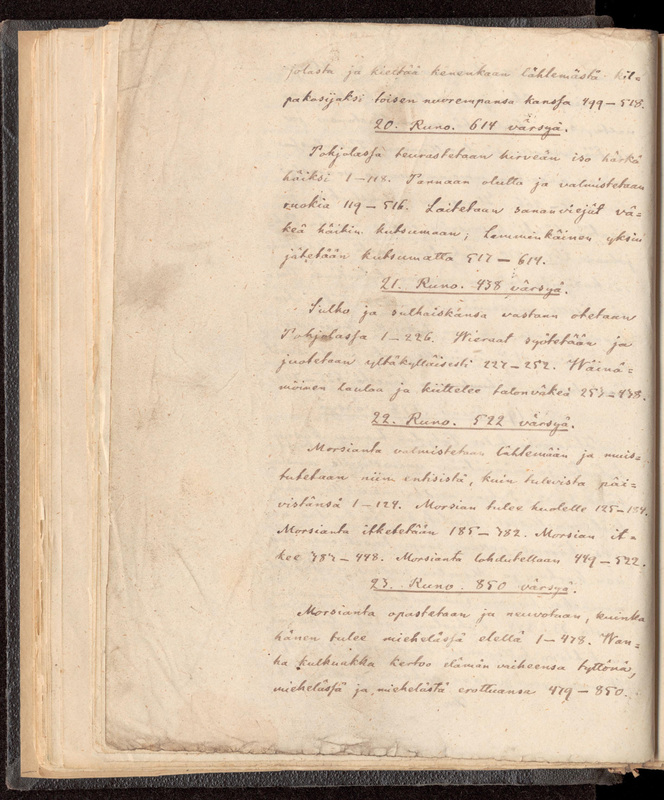 jolasta ja kieltää kenenkään lähtemästä kil=
pakosijaksi toisen nuorempansa kanssa 499 — 518.
20. Runo. 614 värsyä.
Pohjolassa teurastetaan hirveän iso härkä
häiksi 1 — 118. Pannaan olutta ja valmistetaan
ruokia 119 — 516. Laitetaan sananviejät vä=
keä häihin kutsumaan; Lemminkäinen yksin
jätetään kutsumatta 517 — 614.
21. Runo. 438 värsyä.
Sulho ja sulhaiskansa vastaan otetaan
Pohjolassa 1 — 226. Wieraat syötetään ja
juotetaan yltäkylläisesti 227 — 252. Wäinä=
möinen laulaa ja kiittelee talonväkeä 253 — 438.
22. Runo. 522 värsyä.
Morsianta valmistetaan lähtemään ja muis=
tutetaan niin entisistä, kuin tulevista päi=
vistänsä 1 — 124. Morsian tulee huolelle 125 — 184.
Morsianta itketetään 185 — 382. Morsian it=
kee 383 — 448. Morsianta lohdutellaan 449 — 522.
23. Runo. 850 värsyä.
Morsianta opastetaan ja neuvotaan, kuinka
hänen tulee miehelässä elellä 1 — 478. Wan=
ha kulkuakka kertoo elämän vaiheensa tyttönä,
miehelässä ja miehelästä erottuansa 479 — 850.